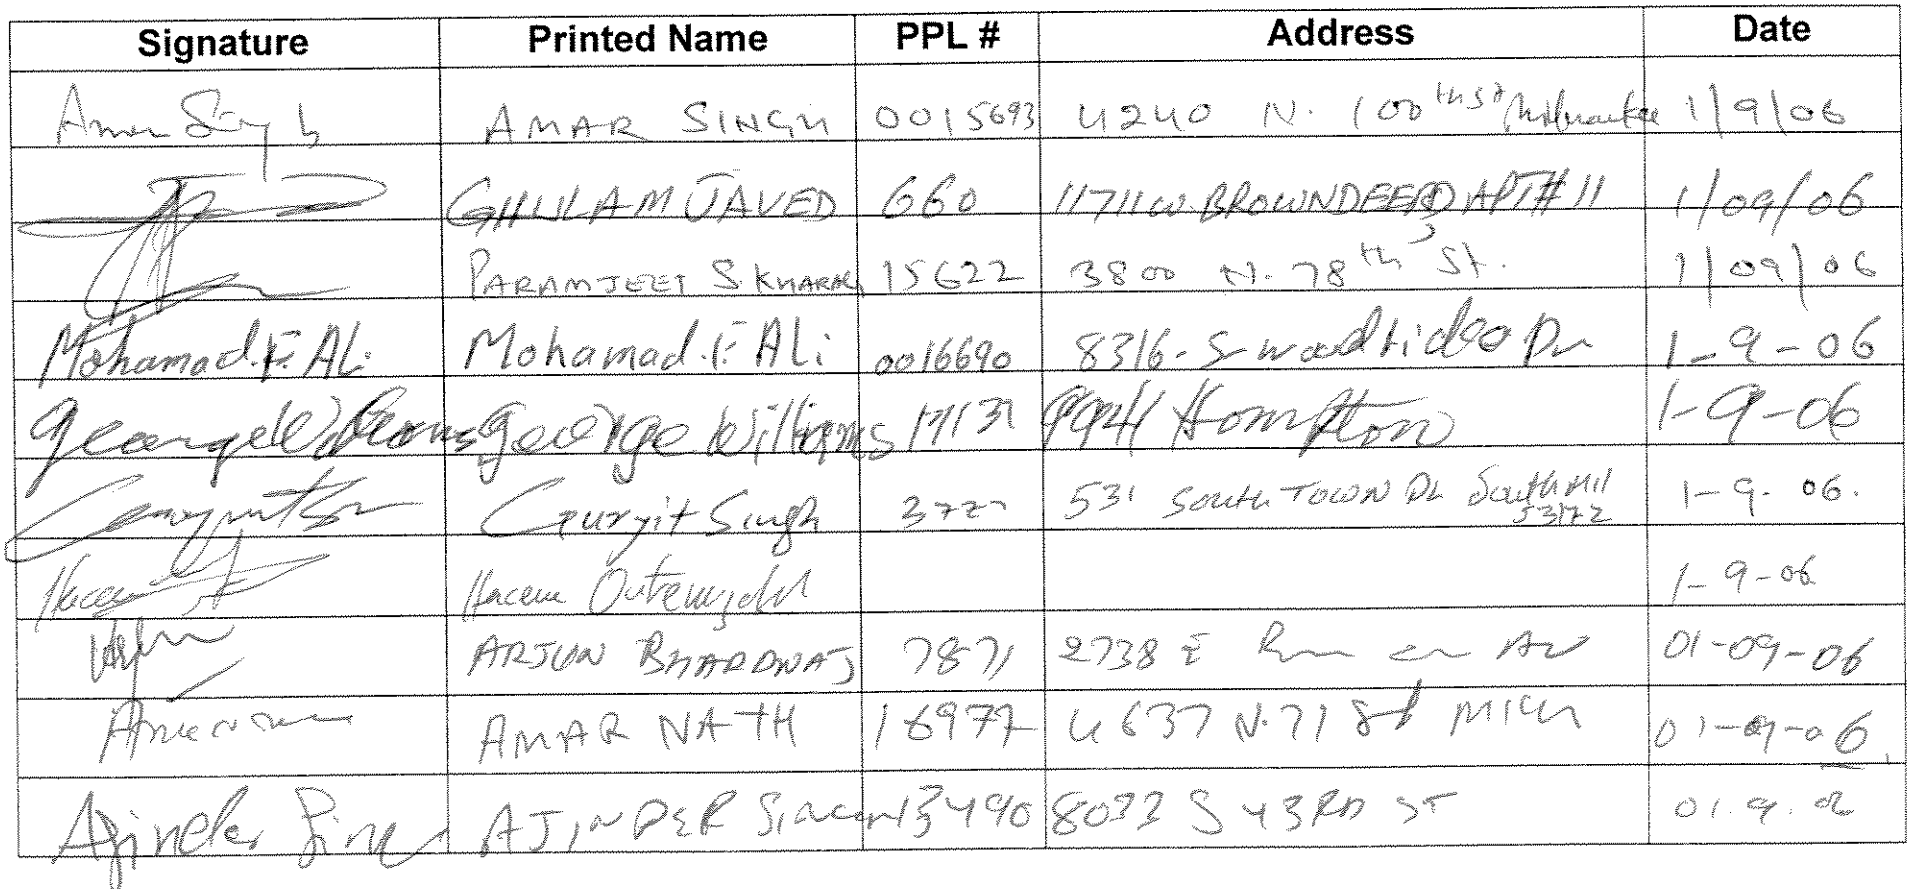 Signature Printed Name PPL # Address Date
Amar Singh AMAR SINGH 0015693 4240 N. 100th St Milwaukee 1/9/06
GHULAM JAVED 660 11711 W. BROWNDEER RD APT# 11 1/09/06
PARAMJEET S. 15622 3800 N. 78th St. 1/09/06
Mohamad.F. ALi Mohamad.F. ALi 0016690 8316 - S 1-9-06
George Williams George Williams Hampton 1-9-06
Guryit Singh 531 SOUTH TOWN DR South Mil 1-9-06.
53172
Hacene 1-9-06
ARJUN BHARDWAJ 7871 2738 E 01-09-06
AMAR NATH 16977 4637 N. 71 St 01-09-06
Ajinder Sing AJINDER 13490 8033 S 43RD ST 01.9.06